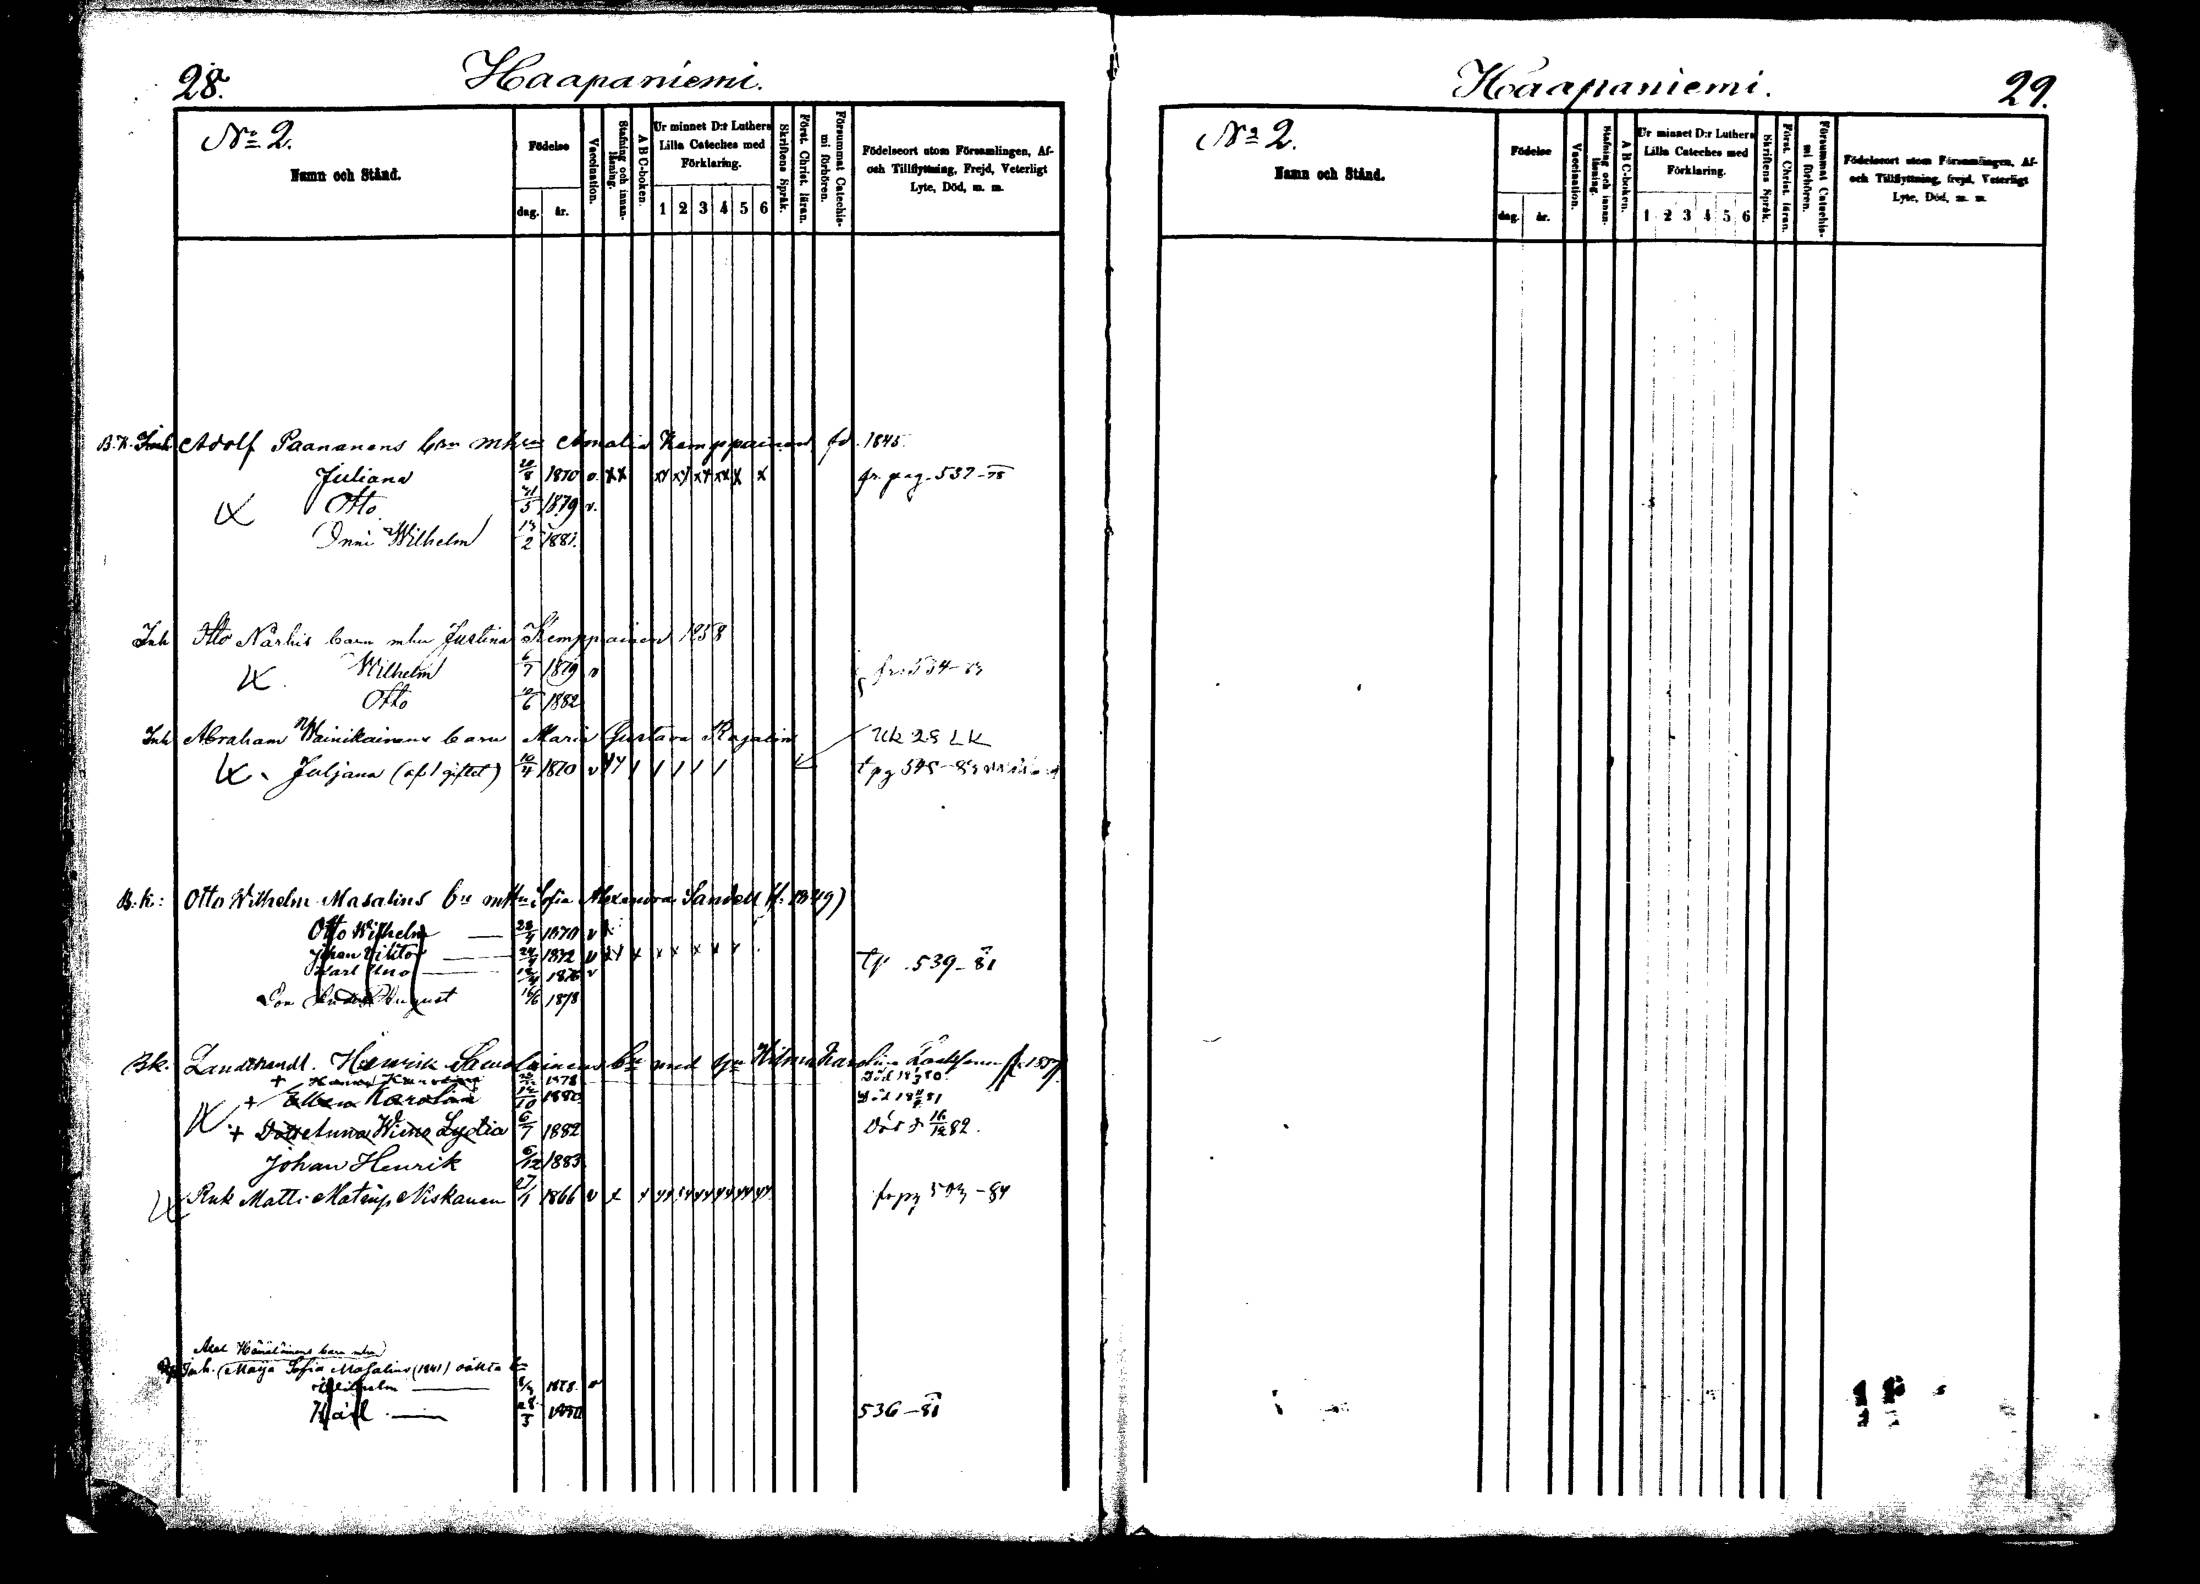 28.
Haapaniemi.
No 2.
Namn och Stånd.
Födelse
dag.
år.
Vaccination.
Stafning och innanläsning.
A B C-boken.
Ur minnet D:r Luthers
Lilla Cateches med
Förklaring.
1 2 3 4 5 6
Skriftens Språk.
Förat. Christ. läran.
Försummat Catechismi förhören.
Födelseort utom Församlingen, Af-
och Tillflyttning, Frejd, Veterligt
Lyte, Död, m. m.
B.K. Inh Adolf Paananens brn mhu Amalia Kemppainen fd. 1845
Juliana 20/8 1870 v. xx xx xx xx xx x x fr. pag. 537-78
Otto 21/5 1879 v.
Onni Wilhelm 13/2 1881.
Inh Otto Närhis barn mhu Justina Kemppainen 1858
Wilhelm 6/7 1879 v fr. 534-83
Otto 12/6 1882
Inh Abraham Wainikainens barn Maria Gustava Rajalin Uk 28 LK
Juljana (af 1 giftet) 10/4 1870 v t pg 545-83
B.k: Otto Wilhelm Masalins bn mhu Sofia Alexandra Sandell (f. 1849)
Otto Wilhelm 28/4 1870 v x
Johan Viktor 24/4 1872 v xx x x x x x
Karl Uno 1876 v tp. 539-81
Son August 16/6 1878
Bk. Landthandl. Henrik Savolainens bn med hu Hilma Karolina
+ Hanna Karolina 1878 Död 80
+ Ellen Karolina 14/10 1880 Död 81
+ Dottr Anna Wilma Lydia 6/7 1882 Död d 16/12 82.
Johan Henrik 6/12 1883
Rnk Matti Matinp. Niskanen 27/1 1866 v x fr pg 503-84
Axel Hämäläinens barn mhu
Inh. (Maija Sofia Masalins (1841) oäkta bn
Wilhelm 1878. v
Karl 28/3 1880 536-81
Haapaniemi.
29.
No 2.
Namn och Stånd.
Födelse
dag.
år.
Vaccination.
Stafning och innanläsning.
A B C-boken.
Ur minnet D:r Luthers
Lilla Cateches med
Förklaring.
1 2 3 4 5 6
Skriftens Språk.
Förat. Christ. läran.
Försummat Catechismi förhören.
Födelseort utom Församlingen, Af-
och Tillflyttning, frejd, Veterligt
Lyte, Död, m. m.